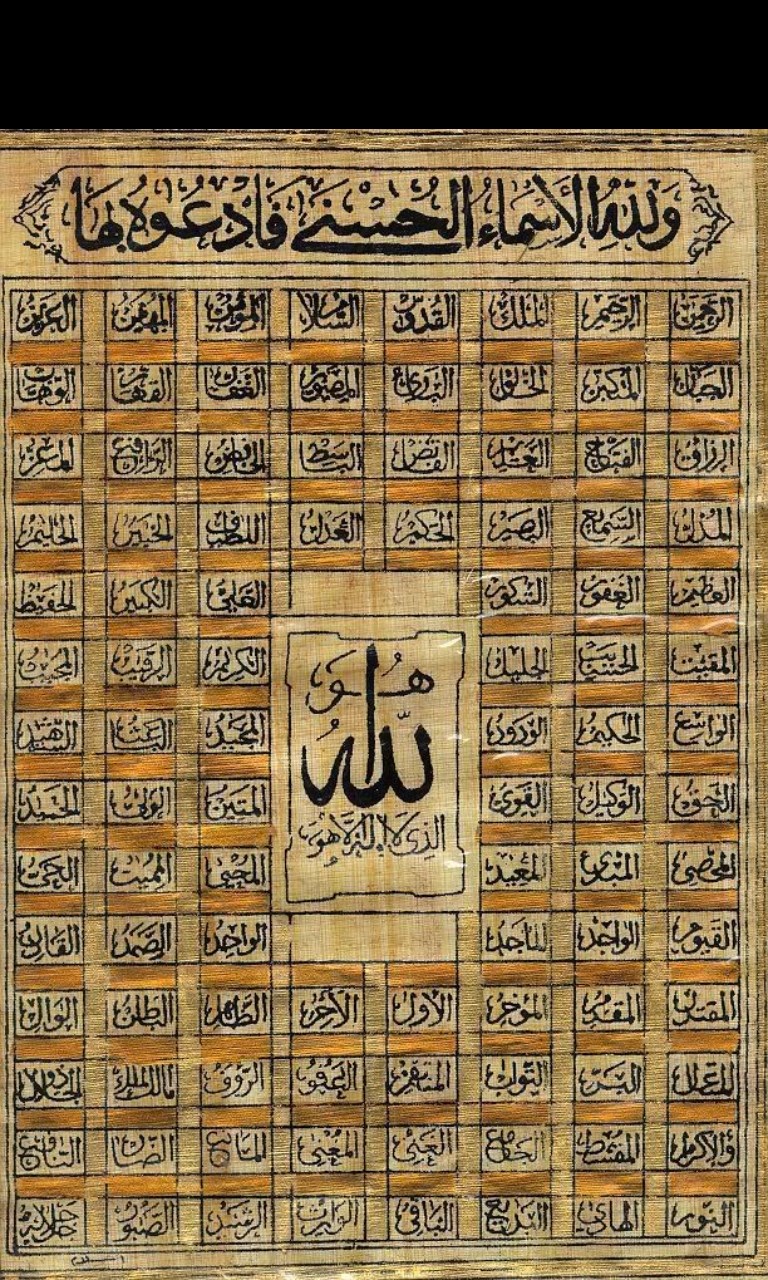 وَلِلَّهِ الْأَسْمَاءُ الْحُسْنَى فَادْعُوهُ بِهَا
الرحمن الرحيم الملك القدوس السلام المؤمن المهيمن العزيز
الجبار المتكبر الخالق البارئ المصور الغفار القهار الوهاب
الرزاق الفتاح العليم القابض الباسط الخافض الرافع المعز
المذل السميع البصير الحكم العدل اللطيف الخبير الحليم
العظيم الغفور الشكور العلي الكبير الحفيظ
المقيت الحسيب الجليل الكريم الرقيب المجيب
الواسع الحكيم الودود المجيد الباعث الشهيد
الحق الوكيل القوي المتين الولي الحميد
المحصي المبدئ المعيد المحيي المميت الحي
القيوم الواجد الماجد الواحد الصمد القادر
هو
الله
الذي لا إله إلا هو
المقتدر المقدم المؤخر الأول الآخر الظاهر الباطن الوالي
المتعال البر التواب المنتقم العفو الرؤوف مالك الملك ذو الجلال
والإكرام المقسط الجامع الغني المغني المانع الضار النافع
النور الهادي البديع الباقي الوارث الرشيد الصبور جل جلاله